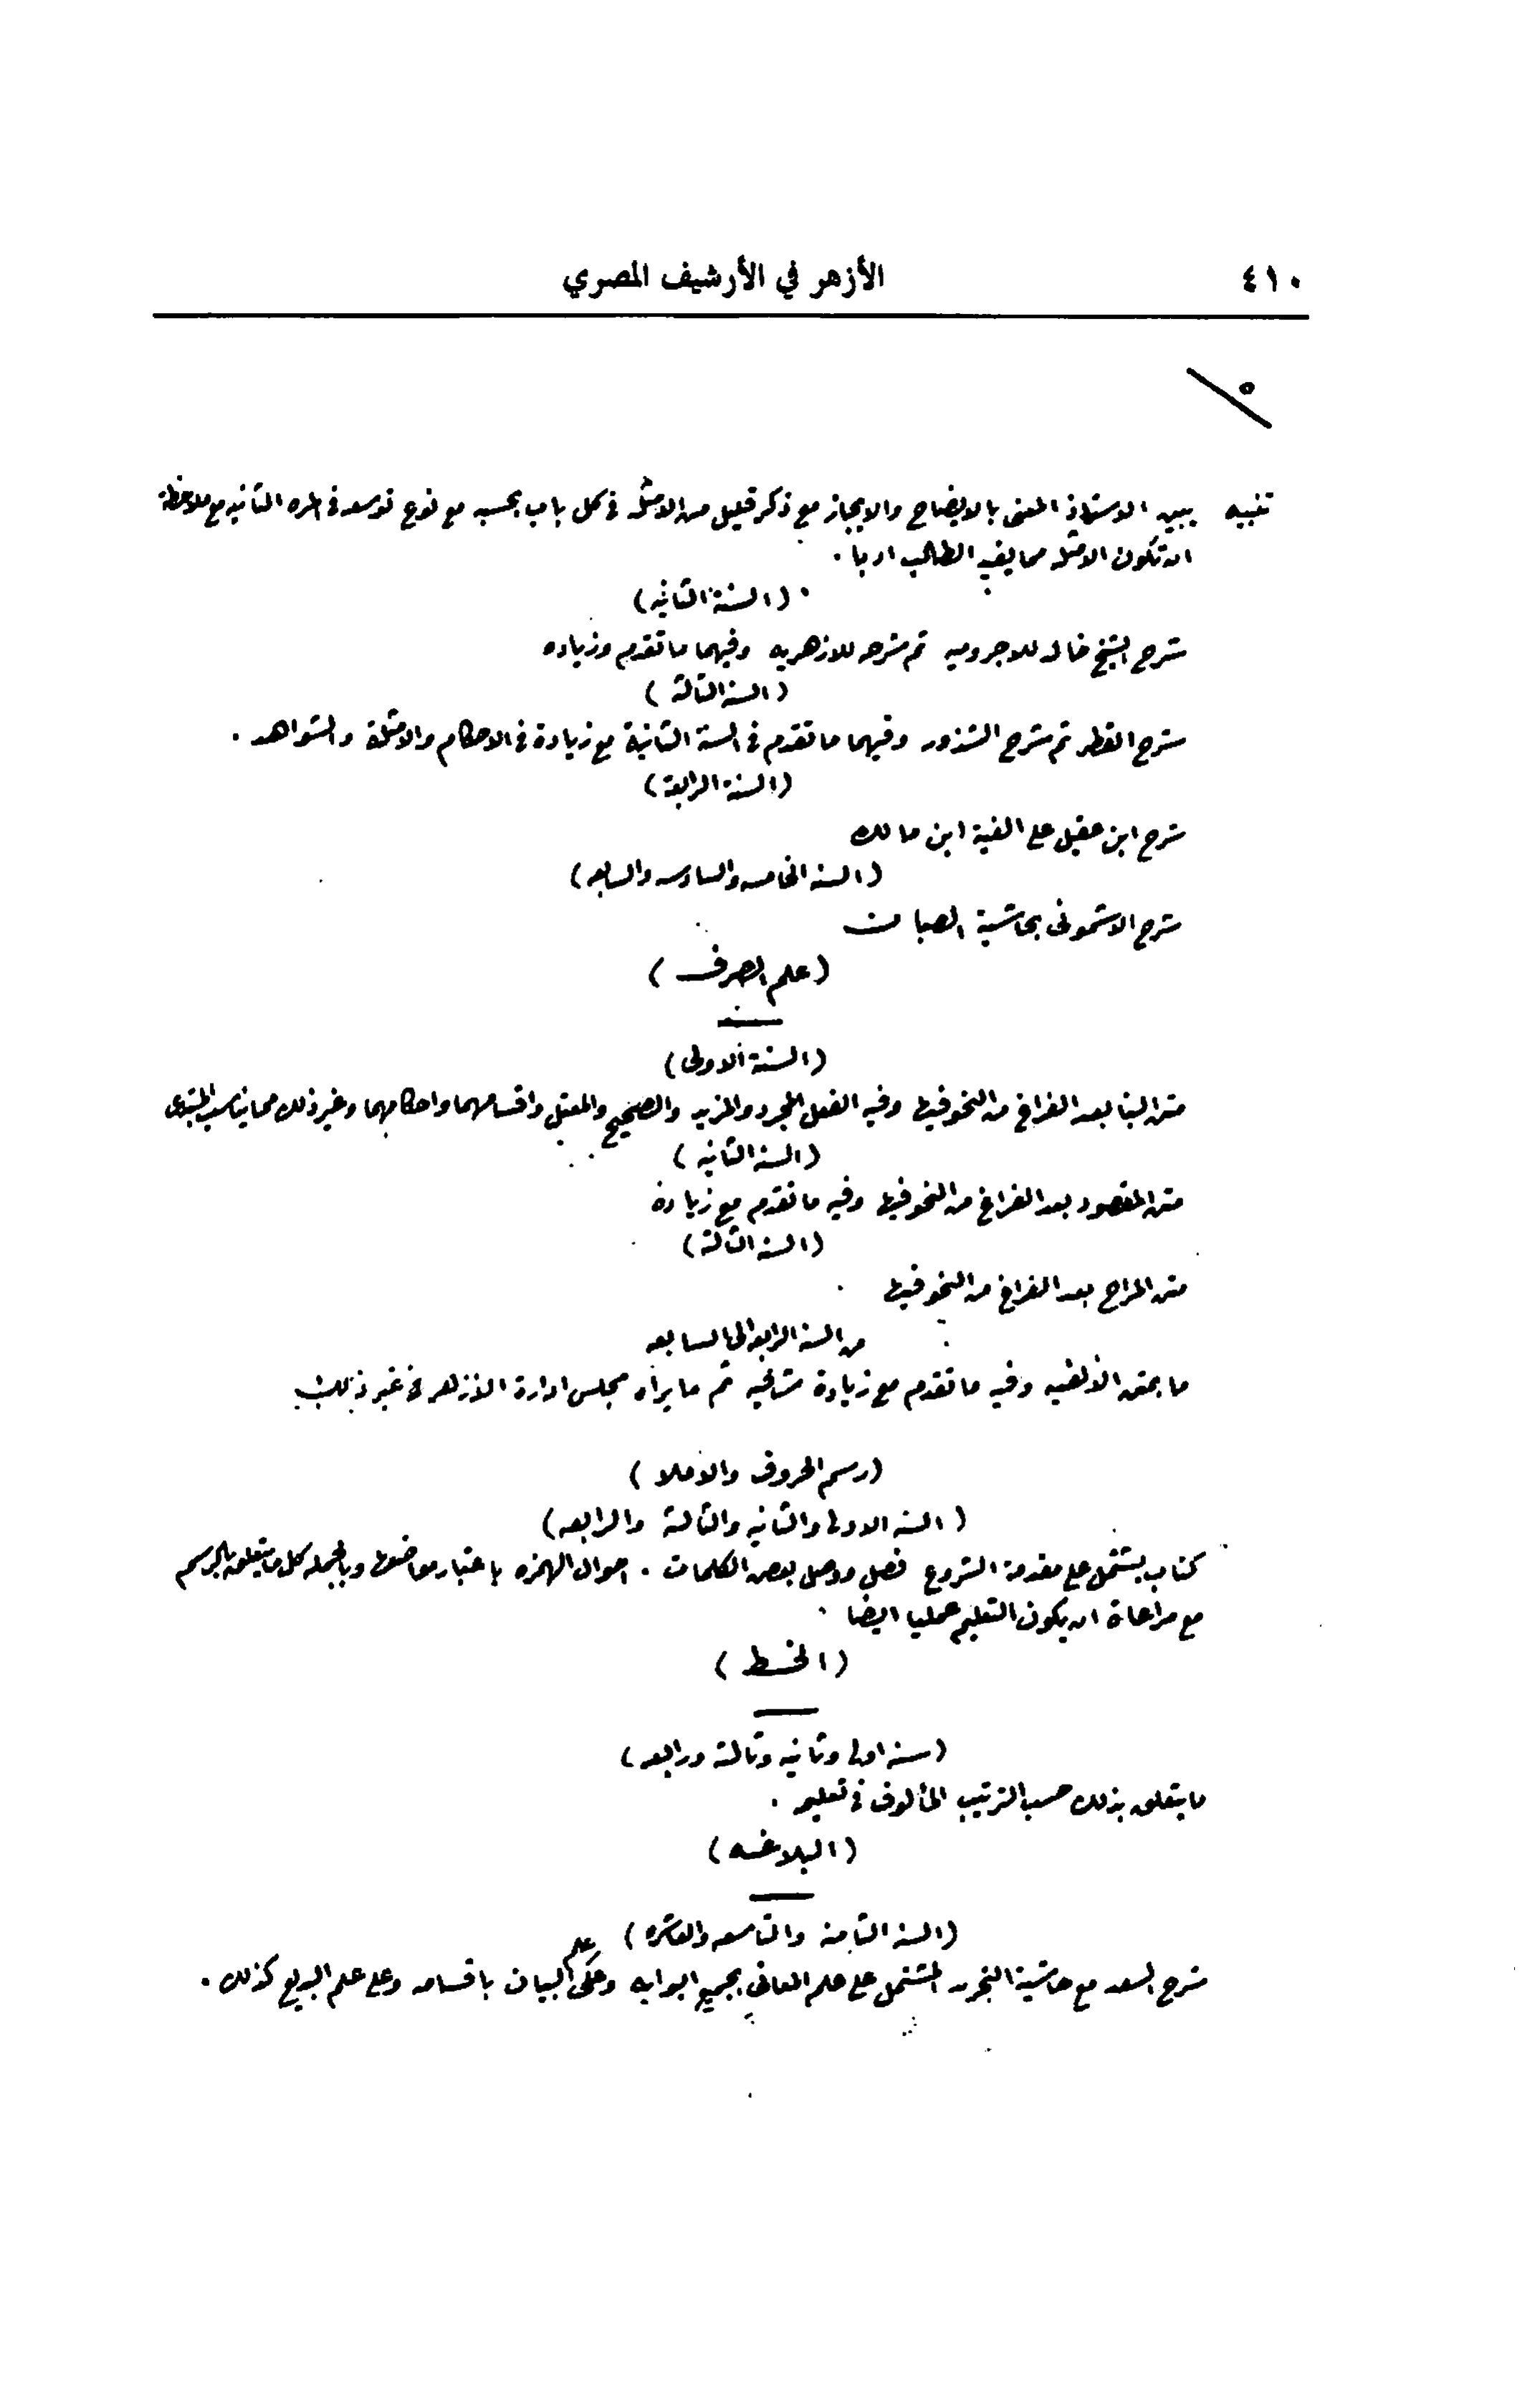 ٤١٠
الأزهر في الأرشيف المصري
٥
تنبيه يبين الاستاذ المعنى بالايضاح والايجاز مع ذكر قليل من الامثله في كل باب بحسبه مع نوع توسعه في المره الثانيه مع ملاحظة
ان تكون الامثله مما يفيد الطالب ادبا .
(السنة الثانيه)
شرح الشيخ خالد للاجروميه ثم شرحه للازهريه وفيهما ما تقدم وزياده
(السنة الثالثة)
شرح القطر ثم شرح الشذور وفيهما ما تقدم في السنة الثانية مع زيادة في الاحكام والامثلة والشواهد .
(السنة الرابعة)
شرح ابن عقيل على الفية ابن مالك
(السنه الخامسه والسادسه والسابعه)
شرح الاشمونى بحاشية الصبان
(علم الصرف)
(السنة الاولى)
متن البنا بعد الفراغ من النحو فيها وفيه الفعل المجرد والمزيد والصحيح والمعتل واقسامهما واحكامهما وغير ذلك مما يناسب المبتدى
(السنة الثانيه)
متن المقصود بعد الفراغ من النحو فيها وفيه ما تقدم مع زيادة
(السنة الثالثة)
متن المراح بعد الفراغ من النحو فيها
من السنة الرابعه الى السابعه
ما بمتن الالفيه وفيه ما تقدم مع زيادة ثم ما يراه مجلس ادارة الازهر في غير ذلك
(رسم الحروف والاملا)
(السنه الاولى والثانيه والثالثة والرابعه)
كتاب يشتمل على مقدمة الشروع فصل ووصل بعض الكلمات . احوال الهمزه باعتبار مواضعها وبالجمله كل ما يتعلق بالرسم
مع مراعاة ان يكون التعليم عمليا ايضا .
(الخط)
(سنة اولى وثانيه وثالثة ورابعه)
ما يتعلق بذلك حسب الترتيب المألوف في تعليمه .
(البلاغه)
(السنة الثامنة والتاسعه والعاشره)
شرح السعد مع حاشية التجريد المشتمل على علم المعانى بجميع ابوابه وعلى علم البيان باقسامه وعلى علم البديع كذلك .